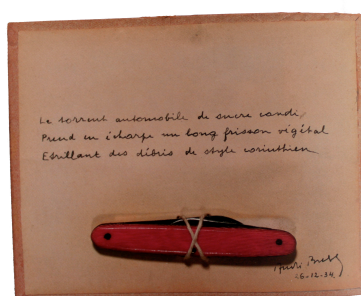 Le torrent automobile de sucre candi,
Prend en écharpe un long frisson végétal
Etrillant des débris de style corinthien
André Breton
26.12.34